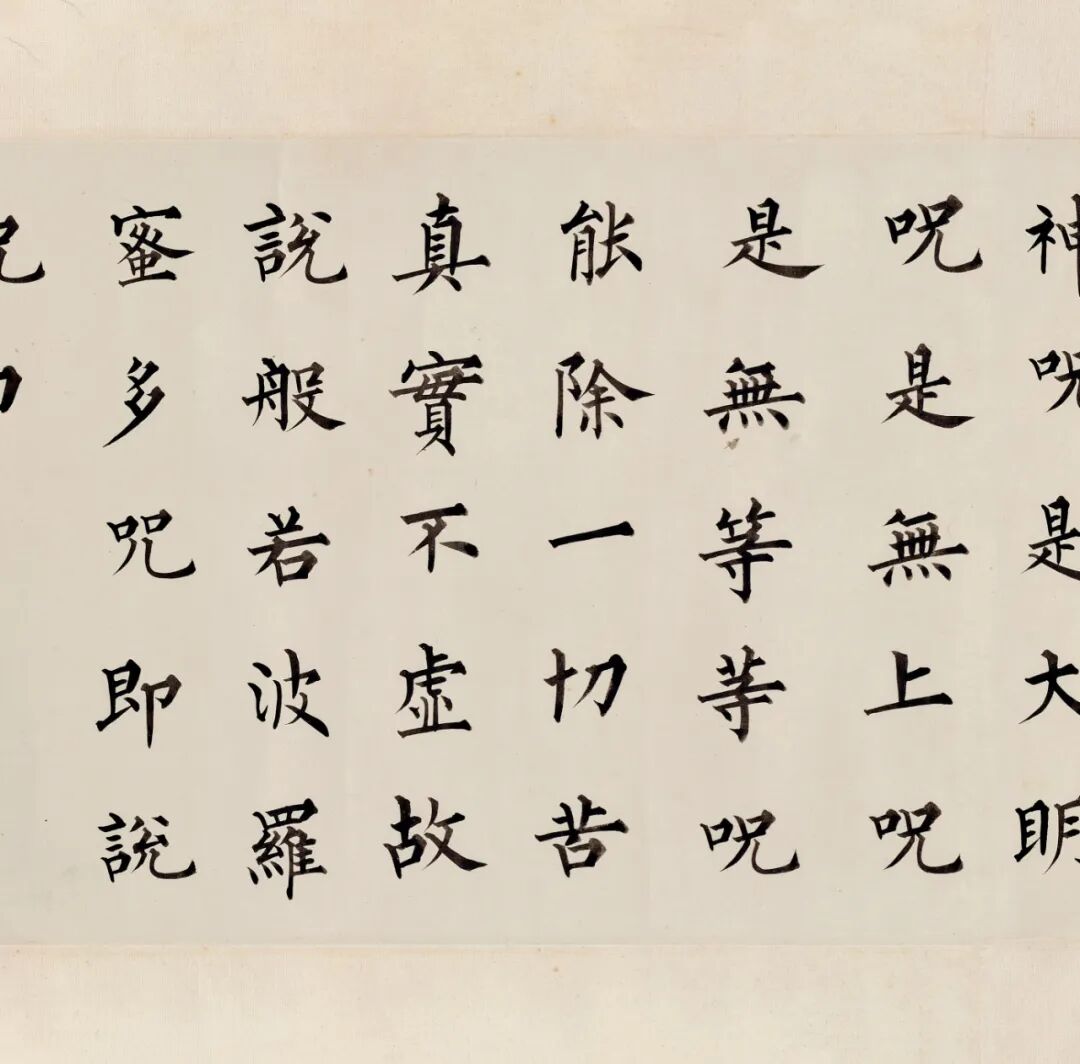 神呪是大明
呪是無上呪
是無等等呪
能除一切苦
真實不虛故
說般若波羅
蜜多咒即說